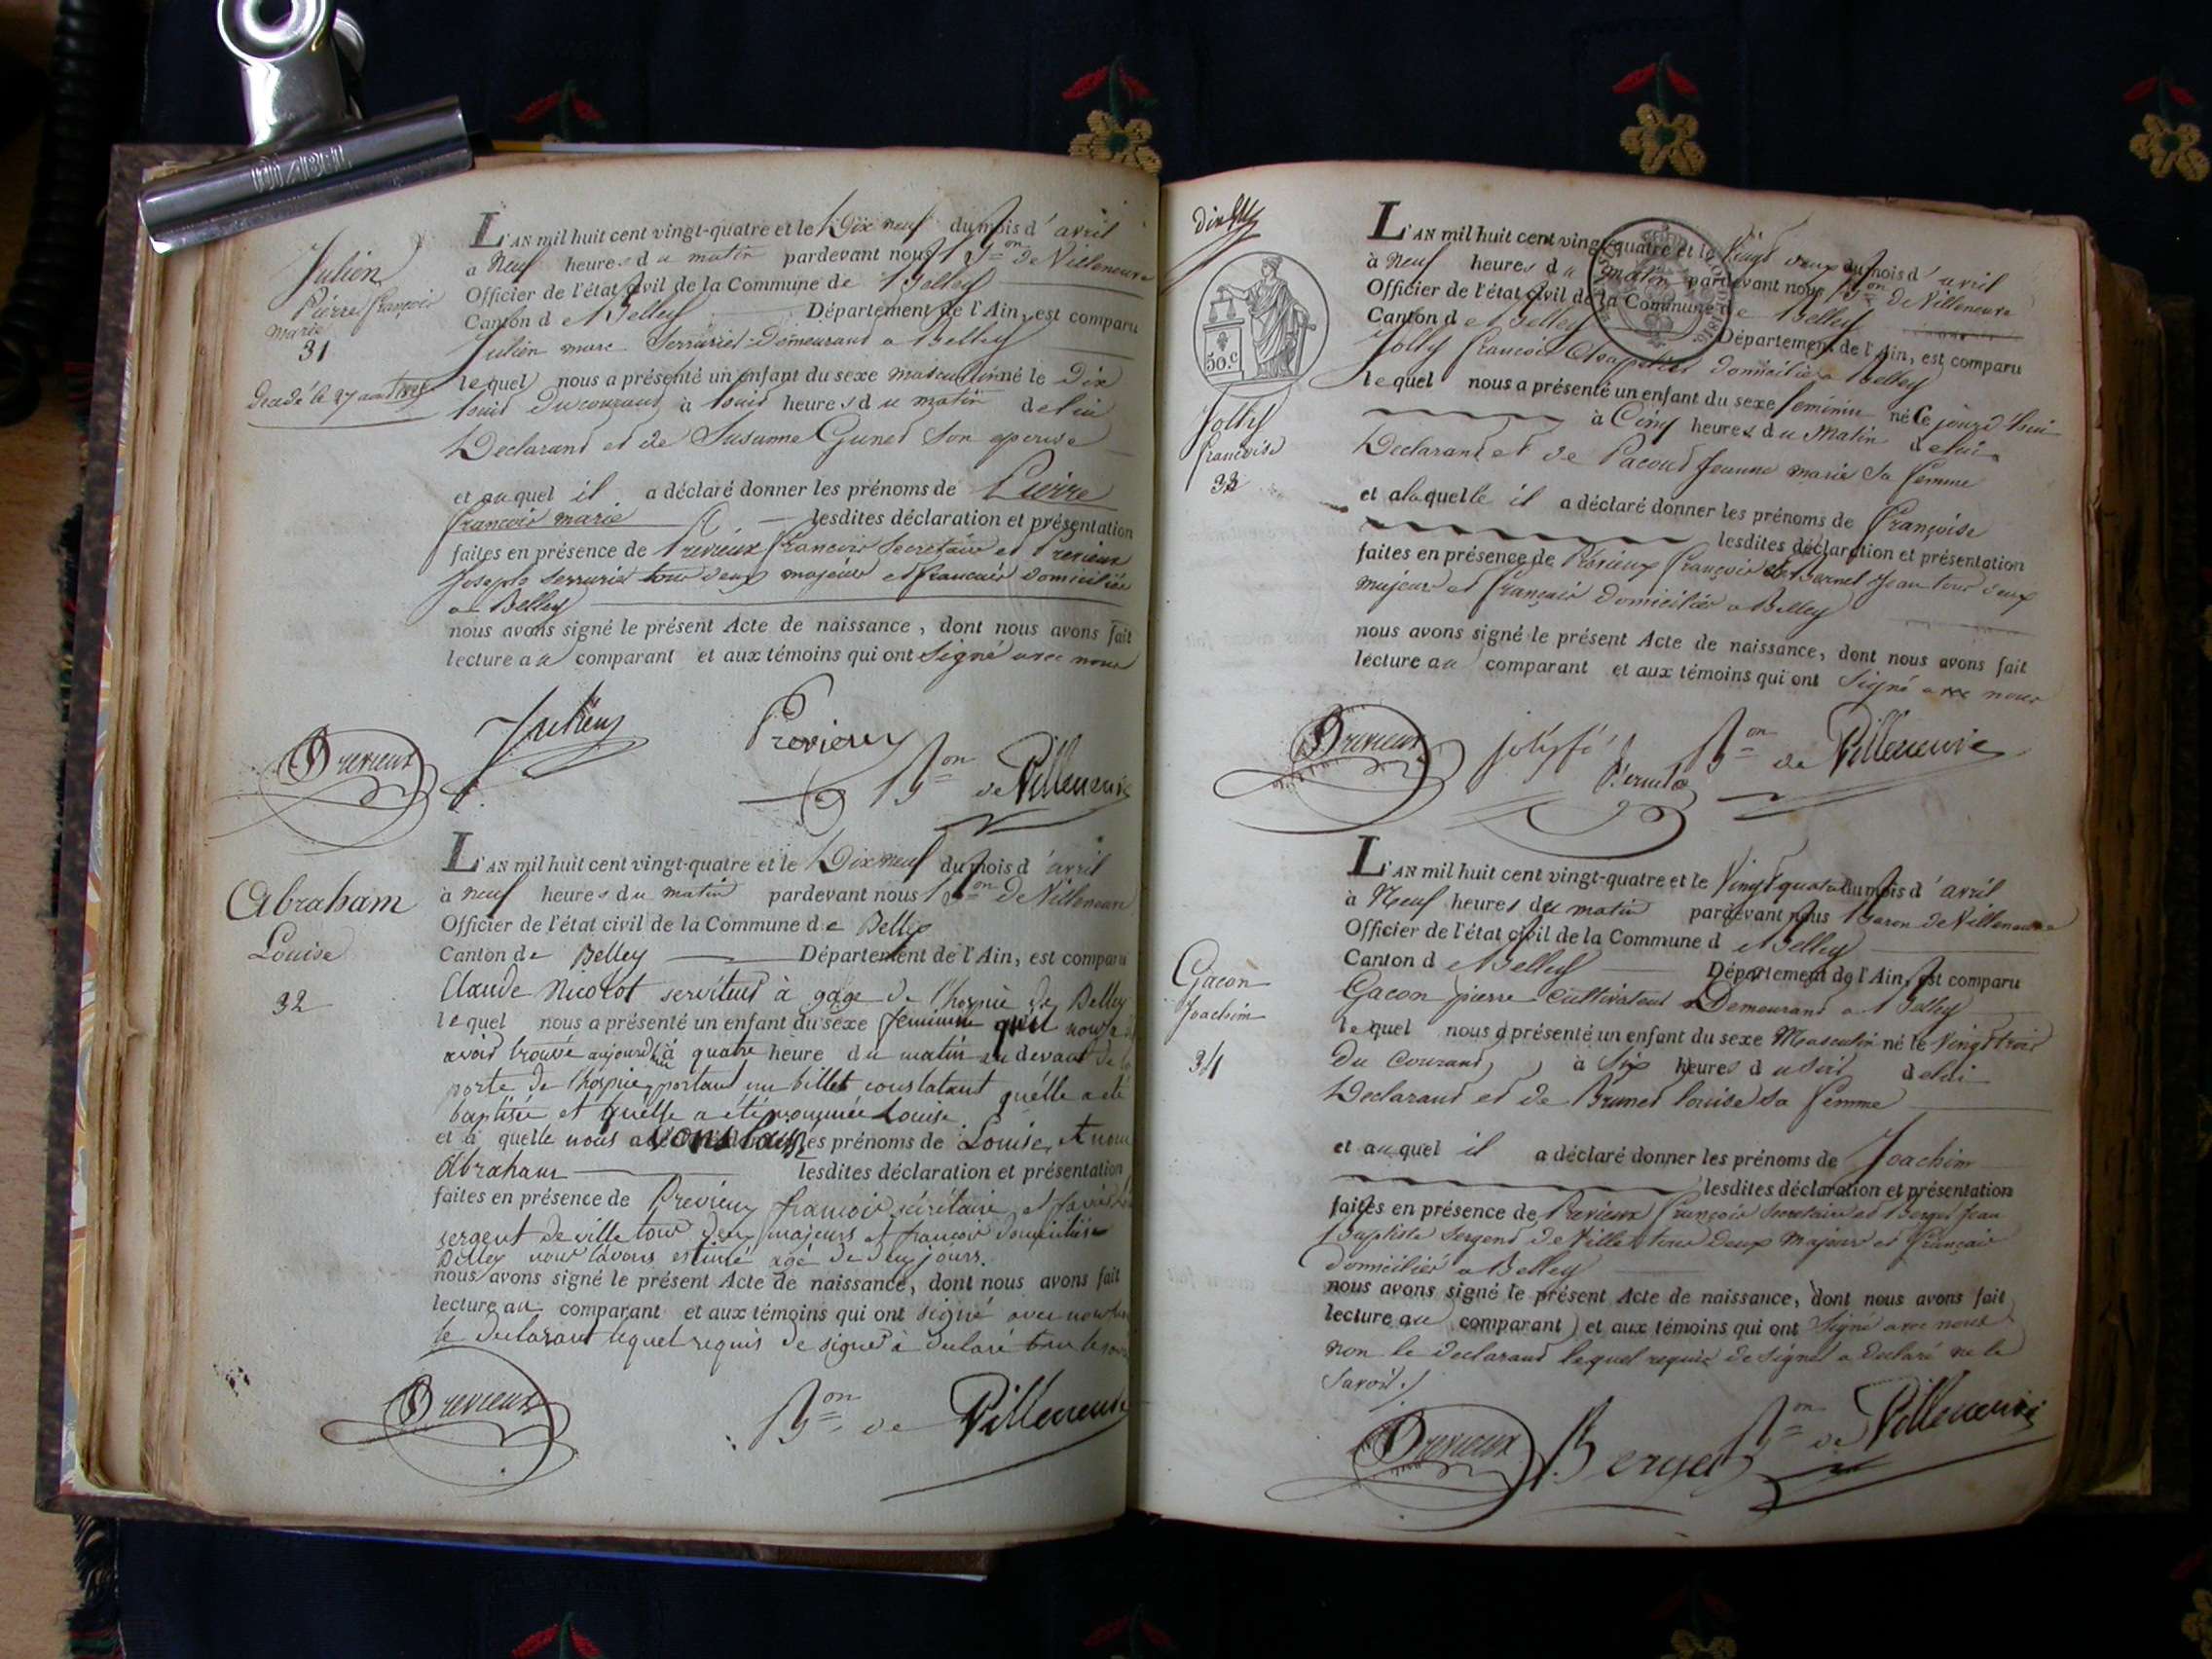 DIABEL
Julien
Pierre françois
marie
31
Décédé le 27 aout
L'AN mil huit cent vingt-quatre et le Dix neuf du mois d'avril
à Neuf heures du matin pardevant nous Bon de Villeneuve
Officier de l'état civil de la Commune de Belley
Canton de Belley Département de l'Ain, est comparu
Julien marc Serrurier Demeurant a Belley
lequel nous a présenté un enfant du sexe masculin né le Dix
huit Du courant à huit heures du matin de lui
Declarant et de Susanne Gunet son epouse
et auquel il a déclaré donner les prénoms de Pierre
françois marie lesdites déclaration et présentation
faites en présence de Previeux françois Secretaire et Previeux
Joseph Serrurier tous deux majeurs et francais domiciliés
a Belley
nous avons signé le présent Acte de naissance, dont nous avons fait
lecture au comparant et aux témoins qui ont Signé avec nous
Previeux Julien Previeux
Bon de Villeneuve
Abraham
Louise
32
L'AN mil huit cent vingt-quatre et le Dix neuf du mois d'avril
à neuf heures du matin pardevant nous Bon De Villeneuve
Officier de l'état civil de la Commune de Belley
Canton de Belley Département de l'Ain, est comparu
Claude Nicolot serviteur à gage de l'hospice de Belley
lequel nous a présenté un enfant du sexe feminin qu'il nous a dit
avoir trouvé aujourd'hui à quatre heure du matin au devant de la
porte de l'hospice, portant un billet constatant qu'elle a été
baptisée et qu'elle a été nommée Louise.
et à quelle nous avons les prénoms de Louise, et nom
Abraham lesdites déclaration et présentation
faites en présence de Previeux françois sécrétaire et
sergent de ville tous deux majeurs et francois domiciliés
Belley nous l'avons estimé agé de deux jours.
nous avons signé le présent Acte de naissance, dont nous avons fait
lecture au comparant et aux témoins qui ont signé avec nous
le declarant lequel requis de signer à declaré
Previeux Bon de Villeneuve
50.c
Jolly
françoise
33
L'AN mil huit cent vingt-quatre et le Vingt deux du mois d'avril
à Neuf heures du Matin pardevant nous Bon De Villeneuve
Officier de l'état civil de la Commune de Belley
Canton de Belley Département de l'Ain, est comparu
Jolly françois Chapelier Domicilié a Belley
lequel nous a présenté un enfant du sexe feminin né Ce jourd'hui
à Cinq heures du Matin de lui
Declarant et de Pacoud Jeanne marie Sa femme
et a laquelle il a déclaré donner les prénoms de françoise
lesdites déclaration et présentation
faites en présence de Previeux françois et Bernet Jean tous deux
majeurs et français Domiciliés a Belley
nous avons signé le présent Acte de naissance, dont nous avons fait
lecture au comparant et aux témoins qui ont Signé avec nous
Previeux Bon de Villeneuve
Gacon
Joachim
34
L'AN mil huit cent vingt-quatre et le Vingt quatre du mois d'avril
à Neuf heures du matin pardevant nous Baron de Villeneuve
Officier de l'état civil de la Commune de Belley
Canton de Belley Département de l'Ain, est comparu
Gacon pierre Cultivateur Demeurant a Belley
lequel nous a présenté un enfant du sexe Masculin né le Vingt trois
Du Courant à Six heures du soir de lui
Declarant et de Brunet louise sa femme
et auquel il a déclaré donner les prénoms de Joachim
lesdites déclaration et présentation
faites en présence de Previeux françois Secretaire et Berger Jean
Baptiste Sergent de Ville tous deux Majeurs et français
Domiciliés a Belley
nous avons signé le présent Acte de naissance, dont nous avons fait
lecture au comparant et aux témoins qui ont Signé avec nous
non le declarant lequel requis de signer a declaré ne le
Savoir./.
Previeux Berger Bon de Villeneuve